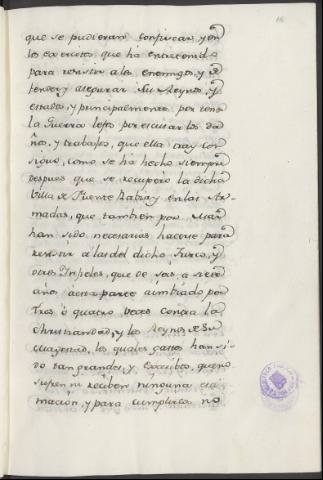 que se pudieran conpirar, y en
los exercitos que ha entretenido
para resistir a los enemigos, y de
fender, y asegurar sus Reynos, y
estados, y principalmente por tener
la Guerra lejos por escusar los da
ños, y trabajos, que ella tray con
sigo, como se ha hecho siempre
despues que se recuperó la dicha
Villa de Fuente Rabia y en las Ar-
madas, que tambien por Mar
han sido necesarias hacerse para
resistir a las del dicho Turco, y
otros Infieles, que de seis, a siete
años, acá parece a imbiado por
tres, o quatro veces contra la
Christiandad, y los Reynos de Su
Magestad, los quales gastos han si-
do tan grandes, y excesibos, que no
sufren ni reciben ninguna esti
macion, y para cumplirlos no